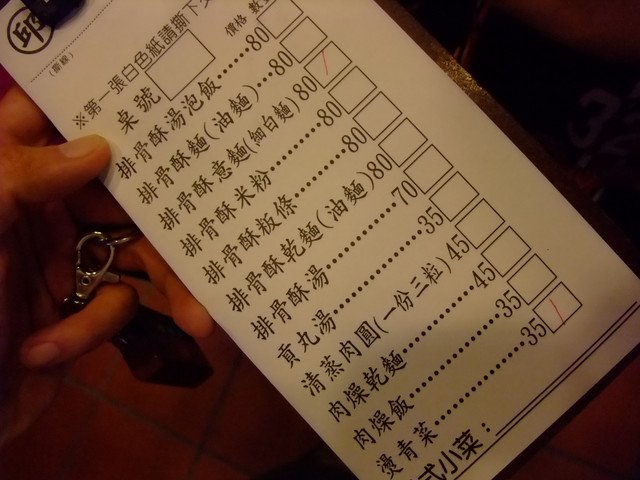 ※第一張白色紙請撕下
桌號
價格 數量
排骨酥湯泡飯······80
排骨酥麵(油麵)···80
排骨酥意麵(細白麵) 80
排骨酥米粉········80
排骨酥粄條········80
排骨酥乾麵(油麵)80
排骨酥湯··········70
貢丸湯············35
清蒸肉圓(一份三粒)45
肉燥乾麵··········45
肉燥飯············35
燙青菜············35
式小菜：